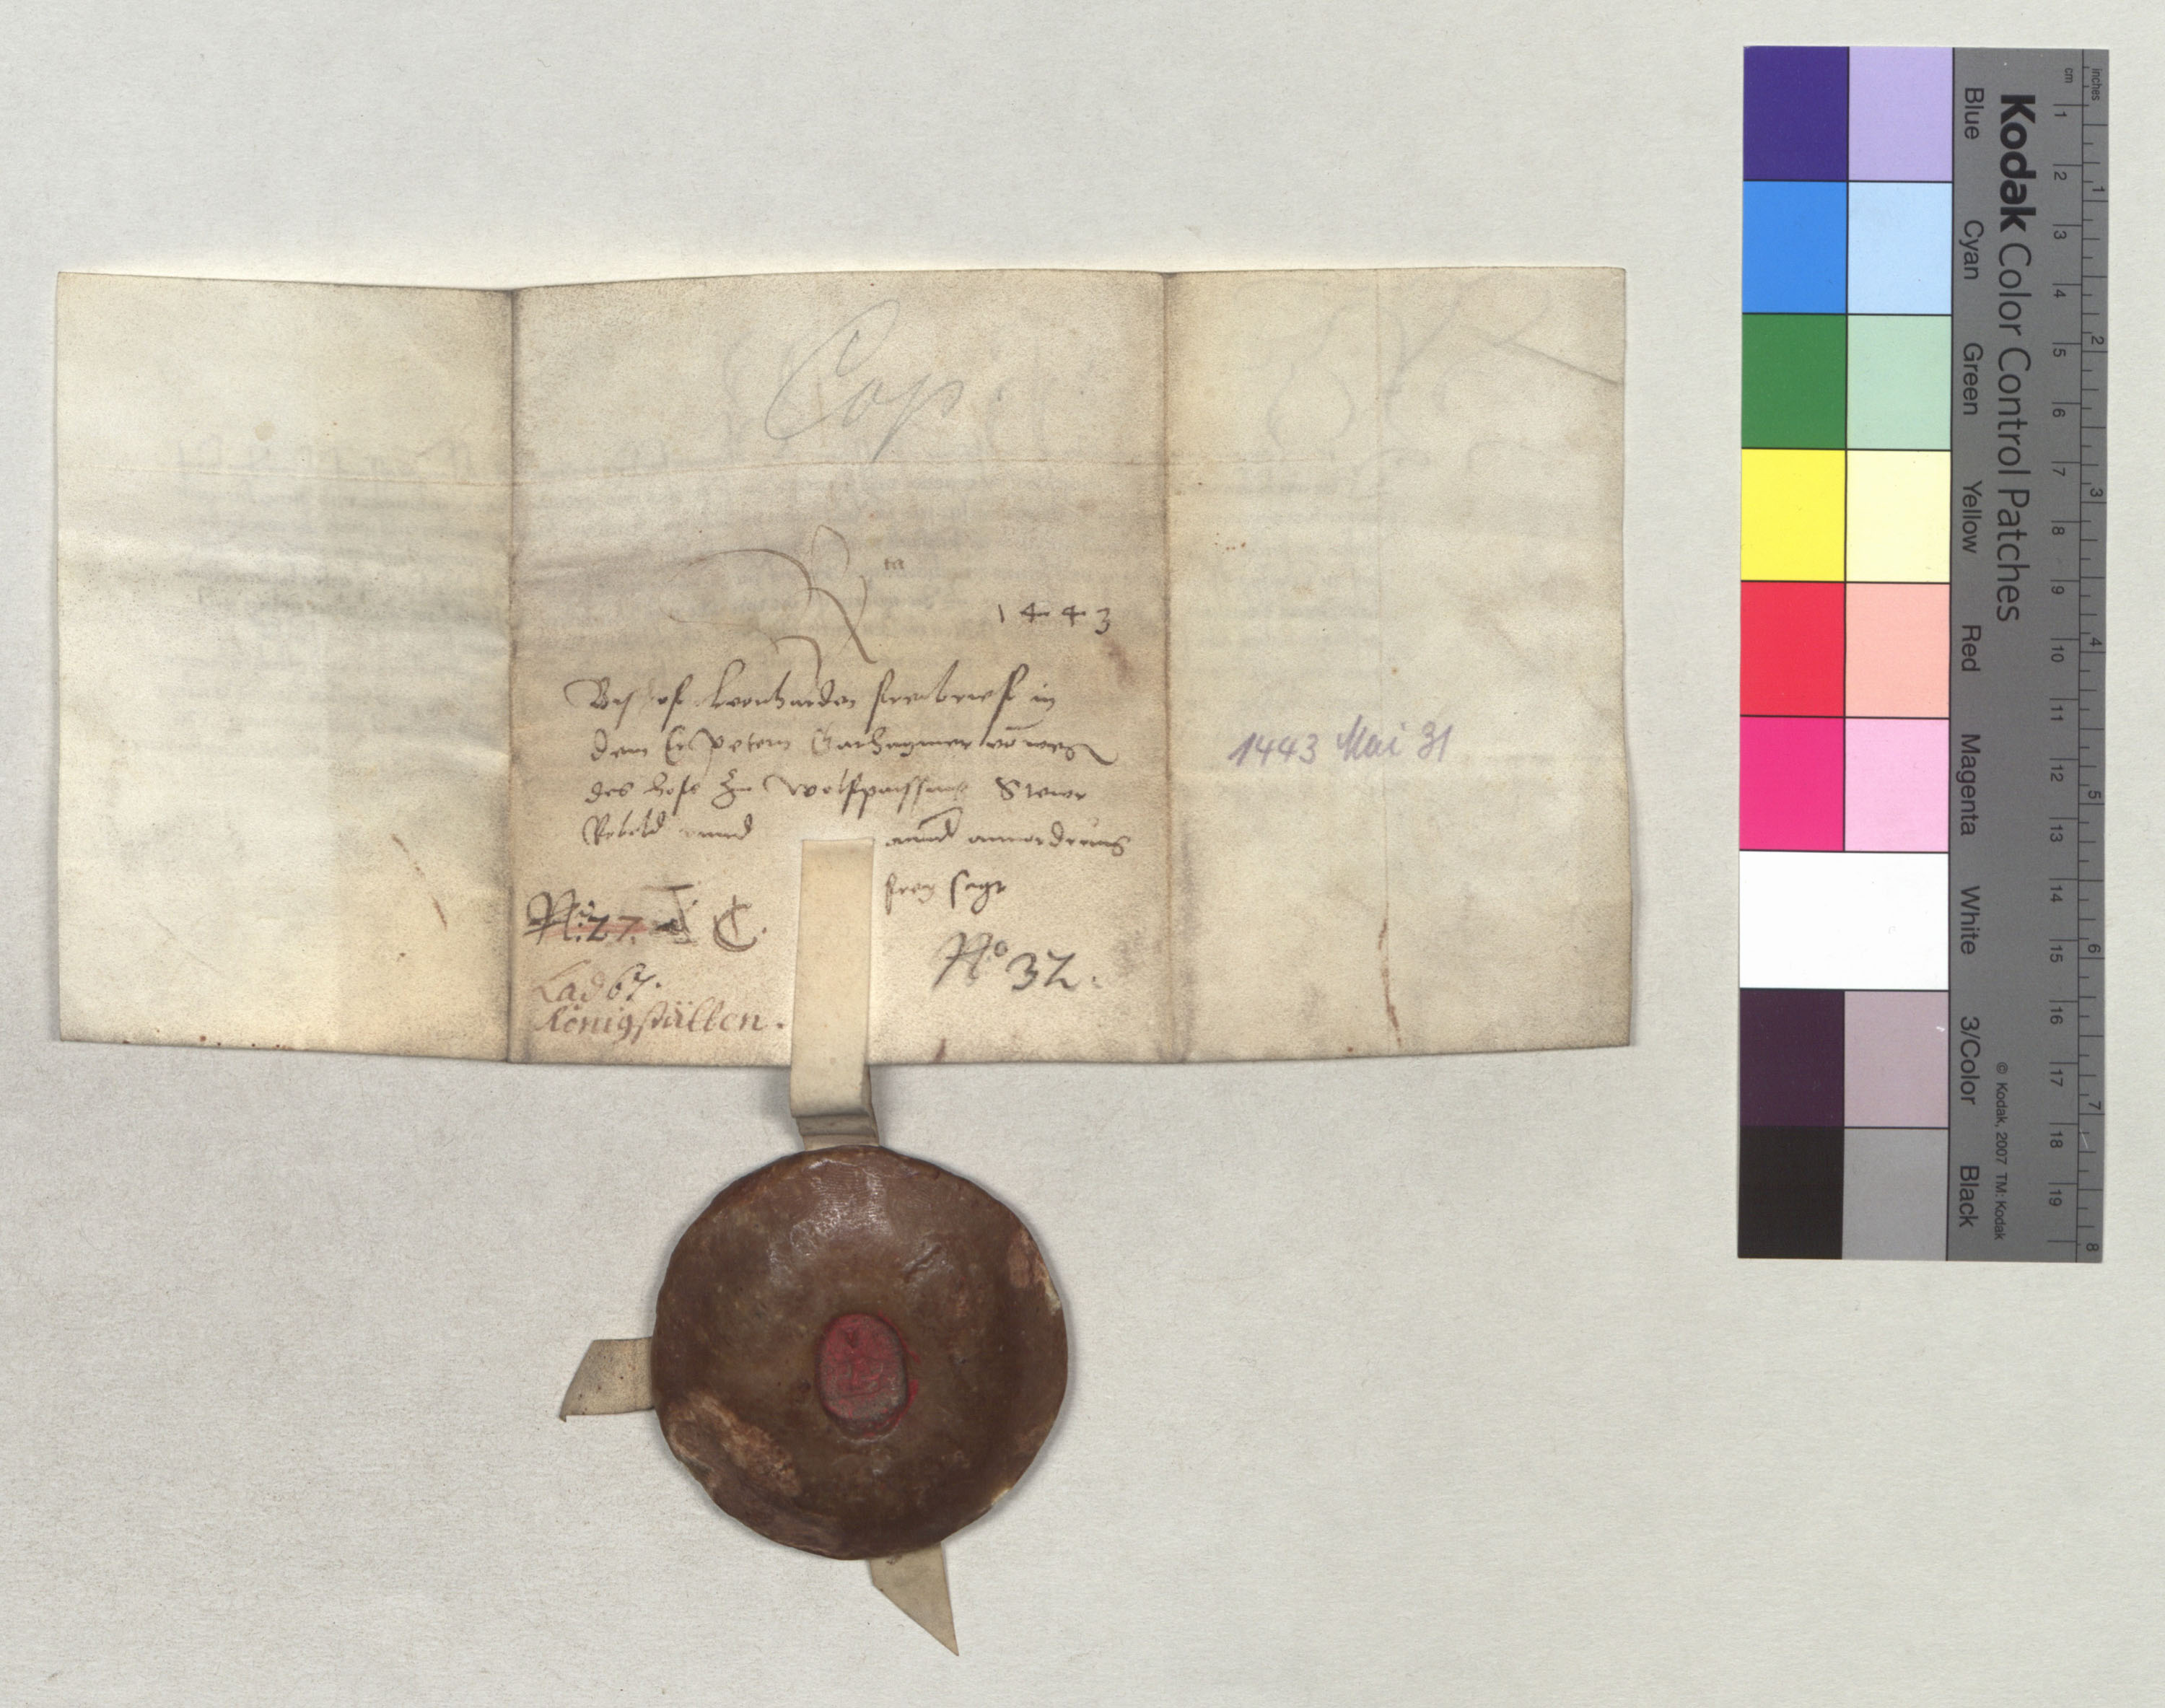 Cop.
R ta
1443
Bischof Leonharden freibrief in
dem Er Petern vō weg
des hofs zu Stewr
vnnd annd annordrung
frey sagt
N.º 27. C.
Nº 32.
Lad 67.
Königställen.
1443 Mai 31
Kodak Color Control Patches
Blue Cyan Green Yellow Red Magenta White 3/Color Black
© Kodak, 2007 TM: Kodak
cm 1 2 3 4 5 6 7 8 9 10 11 12 13 14 15 16 17 18 19
inches 1 2 3 4 5 6 7 8